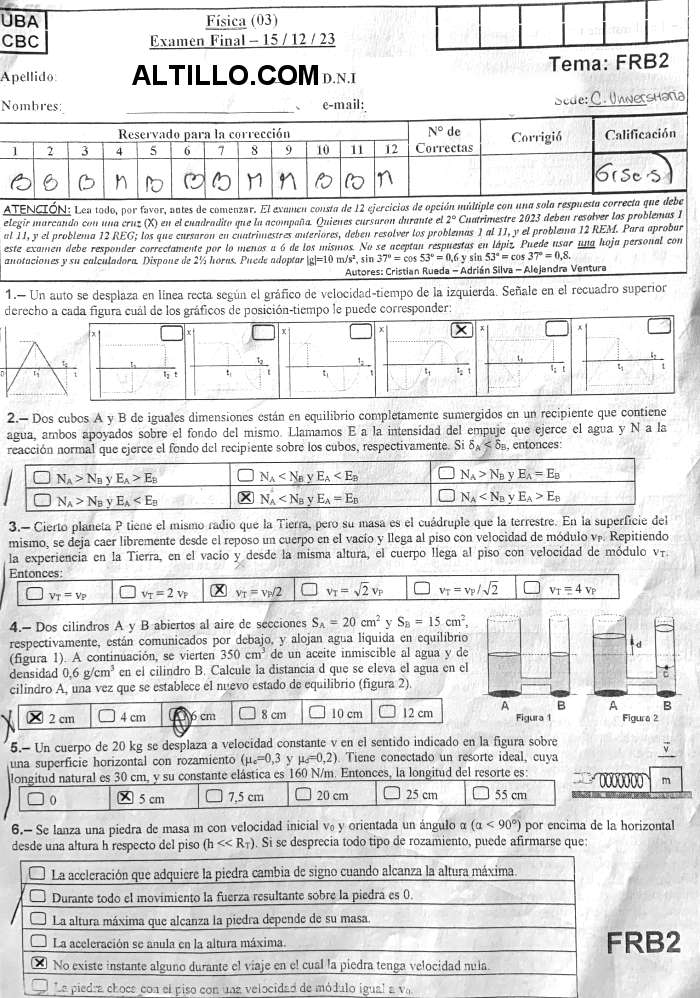 UBA
CBC
Física (03)
Examen Final – 15 / 12 / 23
Tema: FRB2
Apellido:
ALTILLO.COM
D.N.I
Nombres:
e-mail:
Sede: C. Universitaria
Reservado para la corrección
Nº de Correctas
Corrigió
Calificación
1 2 3 4 5 6 7 8 9 10 11 12
B B B M B B B M M B B M
6 (Seis)
ATENCIÓN: Lea todo, por favor, antes de comenzar. El examen consta de 12 ejercicios de opción múltiple con una sola respuesta correcta que debe
elegir marcando con una cruz (X) en el cuadradito que la acompaña. Quienes cursaron durante el 2º Cuatrimestre 2023 deben resolver los problemas 1
al 11, y el problema 12 REG; los que cursaron en cuatrimestres anteriores, deben resolver los problemas 1 al 11, y el problema 12 REM. Para aprobar
este examen debe responder correctamente por lo menos a 6 de los mismos. No se aceptan respuestas en lápiz. Puede usar una hoja personal con
anotaciones y su calculadora. Dispone de 2½ horas. Puede adoptar |g|=10 m/s², sin 37º = cos 53º = 0,6 y sin 53º = cos 37º = 0,8.
Autores: Cristian Rueda – Adrián Silva – Alejandra Ventura
1.– Un auto se desplaza en línea recta según el gráfico de velocidad-tiempo de la izquierda. Señale en el recuadro superior
derecho a cada figura cuál de los gráficos de posición-tiempo le puede corresponder:
0 t₁ t₂ t
x t₁ t₂ t
x t₁ t₂ t
x t₁ t₂ t
x X t₁ t₂ t
x t₁ t₂ t
x t₁ t₂ t
2.– Dos cubos A y B de iguales dimensiones están en equilibrio completamente sumergidos en un recipiente que contiene
agua, ambos apoyados sobre el fondo del mismo. Llamamos E a la intensidad del empuje que ejerce el agua y N a la
reacción normal que ejerce el fondo del recipiente sobre los cubos, respectivamente. Si δA < δB, entonces:
NA > NB y EA > EB
NA < NB y EA < EB
NA > NB y EA = EB
NA > NB y EA < EB
X NA < NB y EA = EB
NA < NB y EA > EB
3.– Cierto planeta P tiene el mismo radio que la Tierra, pero su masa es el cuádruple que la terrestre. En la superficie del
mismo, se deja caer libremente desde el reposo un cuerpo en el vacío y llega al piso con velocidad de módulo vP. Repitiendo
la experiencia en la Tierra, en el vacío y desde la misma altura, el cuerpo llega al piso con velocidad de módulo vT.
Entonces:
vT = vP
vT = 2 vP
X vT = vP/2
vT = √2 vP
vT = vP/√2
vT = 4 vP
4.– Dos cilindros A y B abiertos al aire de secciones SA = 20 cm² y SB = 15 cm²,
respectivamente, están comunicados por debajo, y alojan agua líquida en equilibrio
(figura 1). A continuación, se vierten 350 cm³ de un aceite inmiscible al agua y de
densidad 0,6 g/cm³ en el cilindro B. Calcule la distancia d que se eleva el agua en el
cilindro A, una vez que se establece el nuevo estado de equilibrio (figura 2).
X 2 cm
4 cm
6 cm
8 cm
10 cm
12 cm
d
A B A B
Figura 1 Figura 2
5.– Un cuerpo de 20 kg se desplaza a velocidad constante v en el sentido indicado en la figura sobre
una superficie horizontal con rozamiento (μe=0,3 y μd=0,2). Tiene conectado un resorte ideal, cuya
longitud natural es 30 cm, y su constante elástica es 160 N/m. Entonces, la longitud del resorte es:
v
m
0
X 5 cm
7,5 cm
20 cm
25 cm
55 cm
6.– Se lanza una piedra de masa m con velocidad inicial v₀ y orientada un ángulo α (α < 90º) por encima de la horizontal
desde una altura h respecto del piso (h << RT). Si se desprecia todo tipo de rozamiento, puede afirmarse que:
La aceleración que adquiere la piedra cambia de signo cuando alcanza la altura máxima.
Durante todo el movimiento la fuerza resultante sobre la piedra es 0.
La altura máxima que alcanza la piedra depende de su masa.
La aceleración se anula en la altura máxima.
X No existe instante alguno durante el viaje en el cual la piedra tenga velocidad nula.
La piedra choca con el piso con una velocidad de módulo igual a v₀.
FRB2